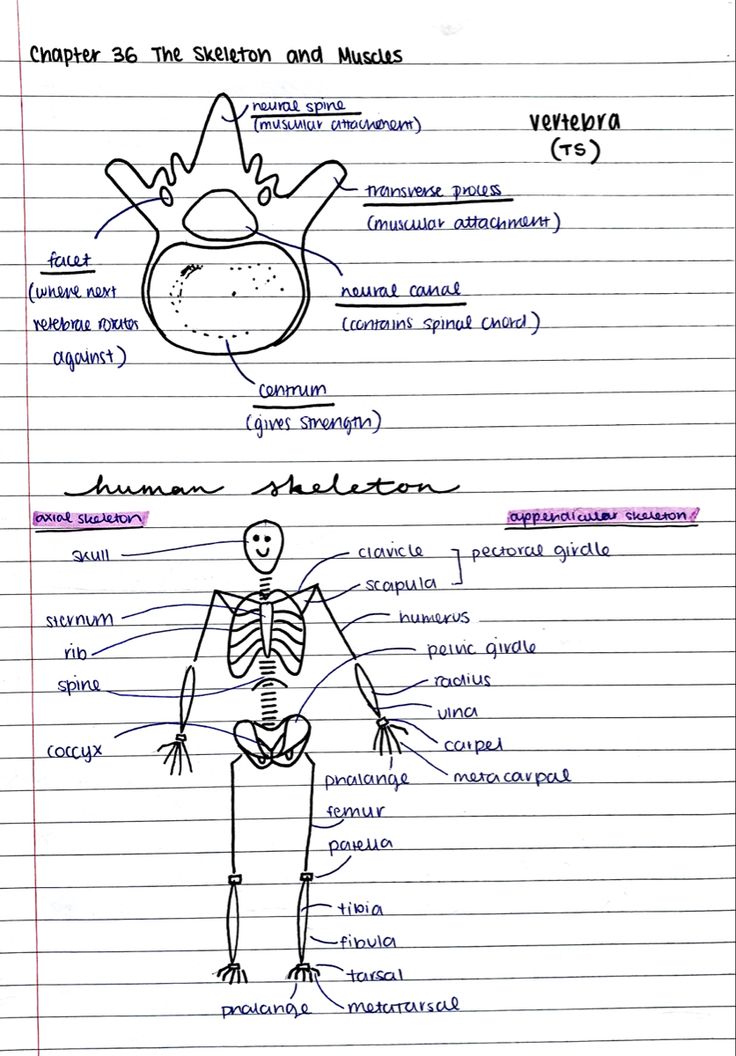 Chapter 36 The Skeleton and Muscles
neural spine
(muscular attachment)
vertebra
(TS)
transverse process
(muscular attachment)
facet
(where next
vetebrae rotates
against)
neural canal
(contains spinal chord)
centrum
(gives strength)
human skeleton
axial skeleton
appendicular skeleton
skull
clavicle
pectoral girdle
scapula
sternum
humerus
rib
pelvic girdle
spine
radius
ulna
coccyx
carpel
phalange
metacarpal
femur
patella
tibia
fibula
tarsal
phalange
metatarsal